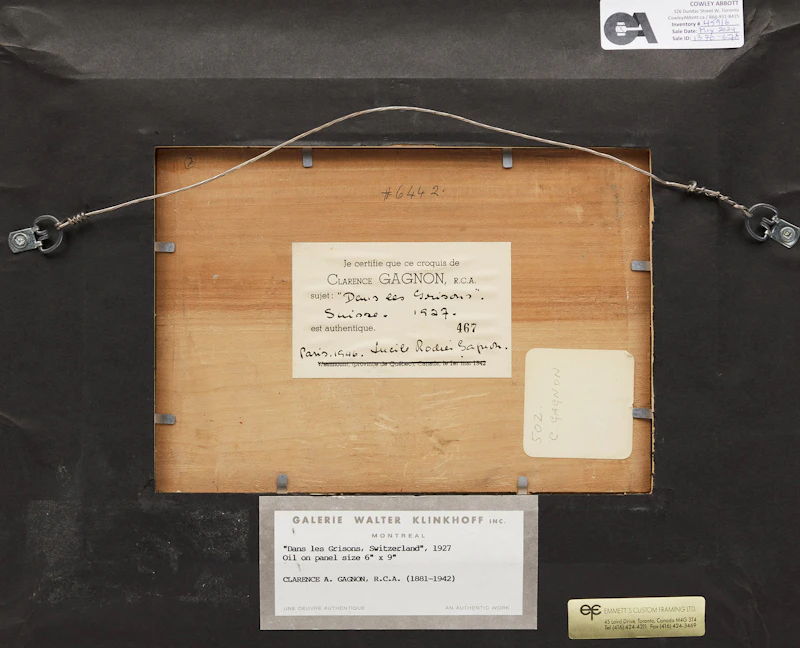 COWLEY ABBOTT
326 Dundas Street W, Toronto
CowleyAbbott.ca / 866-931-8415
Inventory #
Sale Date:
Sale ID:
CA
#6442
Je certifie que ce croquis de
CLARENCE GAGNON, R.C.A.
sujet: "Dans les Grisons".
Suisse. 1927.
est authentique. 467
Paris. 1946. Lucile Rodier Gagnon.
Westmount, (province de Québec), Canada, le 1er mai 1942
502.
C GAGNON
GALERIE WALTER KLINKHOFF INC.
MONTREAL
"Dans les Grisons, Switzerland", 1927
Oil on panel size 6" x 9"
CLARENCE A. GAGNON, R.C.A. (1881-1942)
UNE OEUVRE AUTHENTIQUE AN AUTHENTIC WORK
ecf
EMMETT'S CUSTOM FRAMING LTD.
45 Laird Drive, Toronto, Canada M4G 3T4
Tel (416) 424-4211 Fax (416) 424-3469